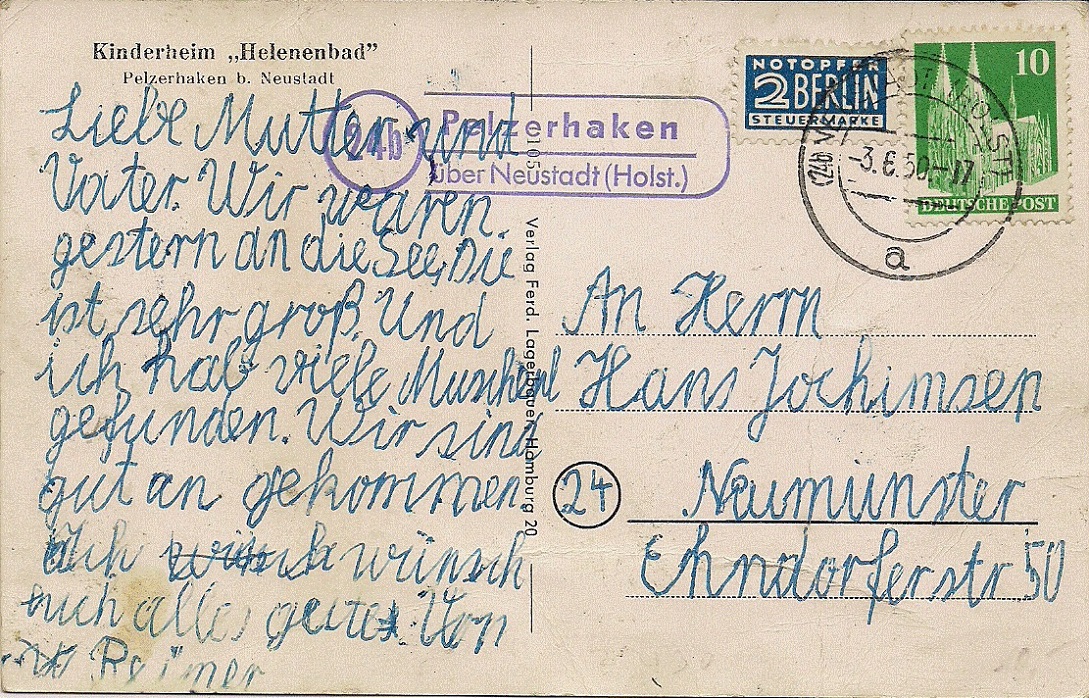 Kinderheim „Helenenbad"
Pelzerhaken b. Neustadt
Liebe Mutter und
Vater. Wir waren
gestern an die See, Die
ist sehr groß. Und
ich hab viele Muscheln
gefunden. Wir sind
gut an gekommen
Ich wünsch
euch alles gutes Von
Reimer
24b
Pelzerhaken
über Neustadt (Holst.)
Verlag Ferd. Lagerbauer, Hamburg 20
NOTOPFER
2 BERLIN
STEUERMARKE
10
DEUTSCHE POST
(24b)
-3.6.50.-17
a
An Herrn
Hans Jochimsen
24 Neumünster
Ehndorferstr 50